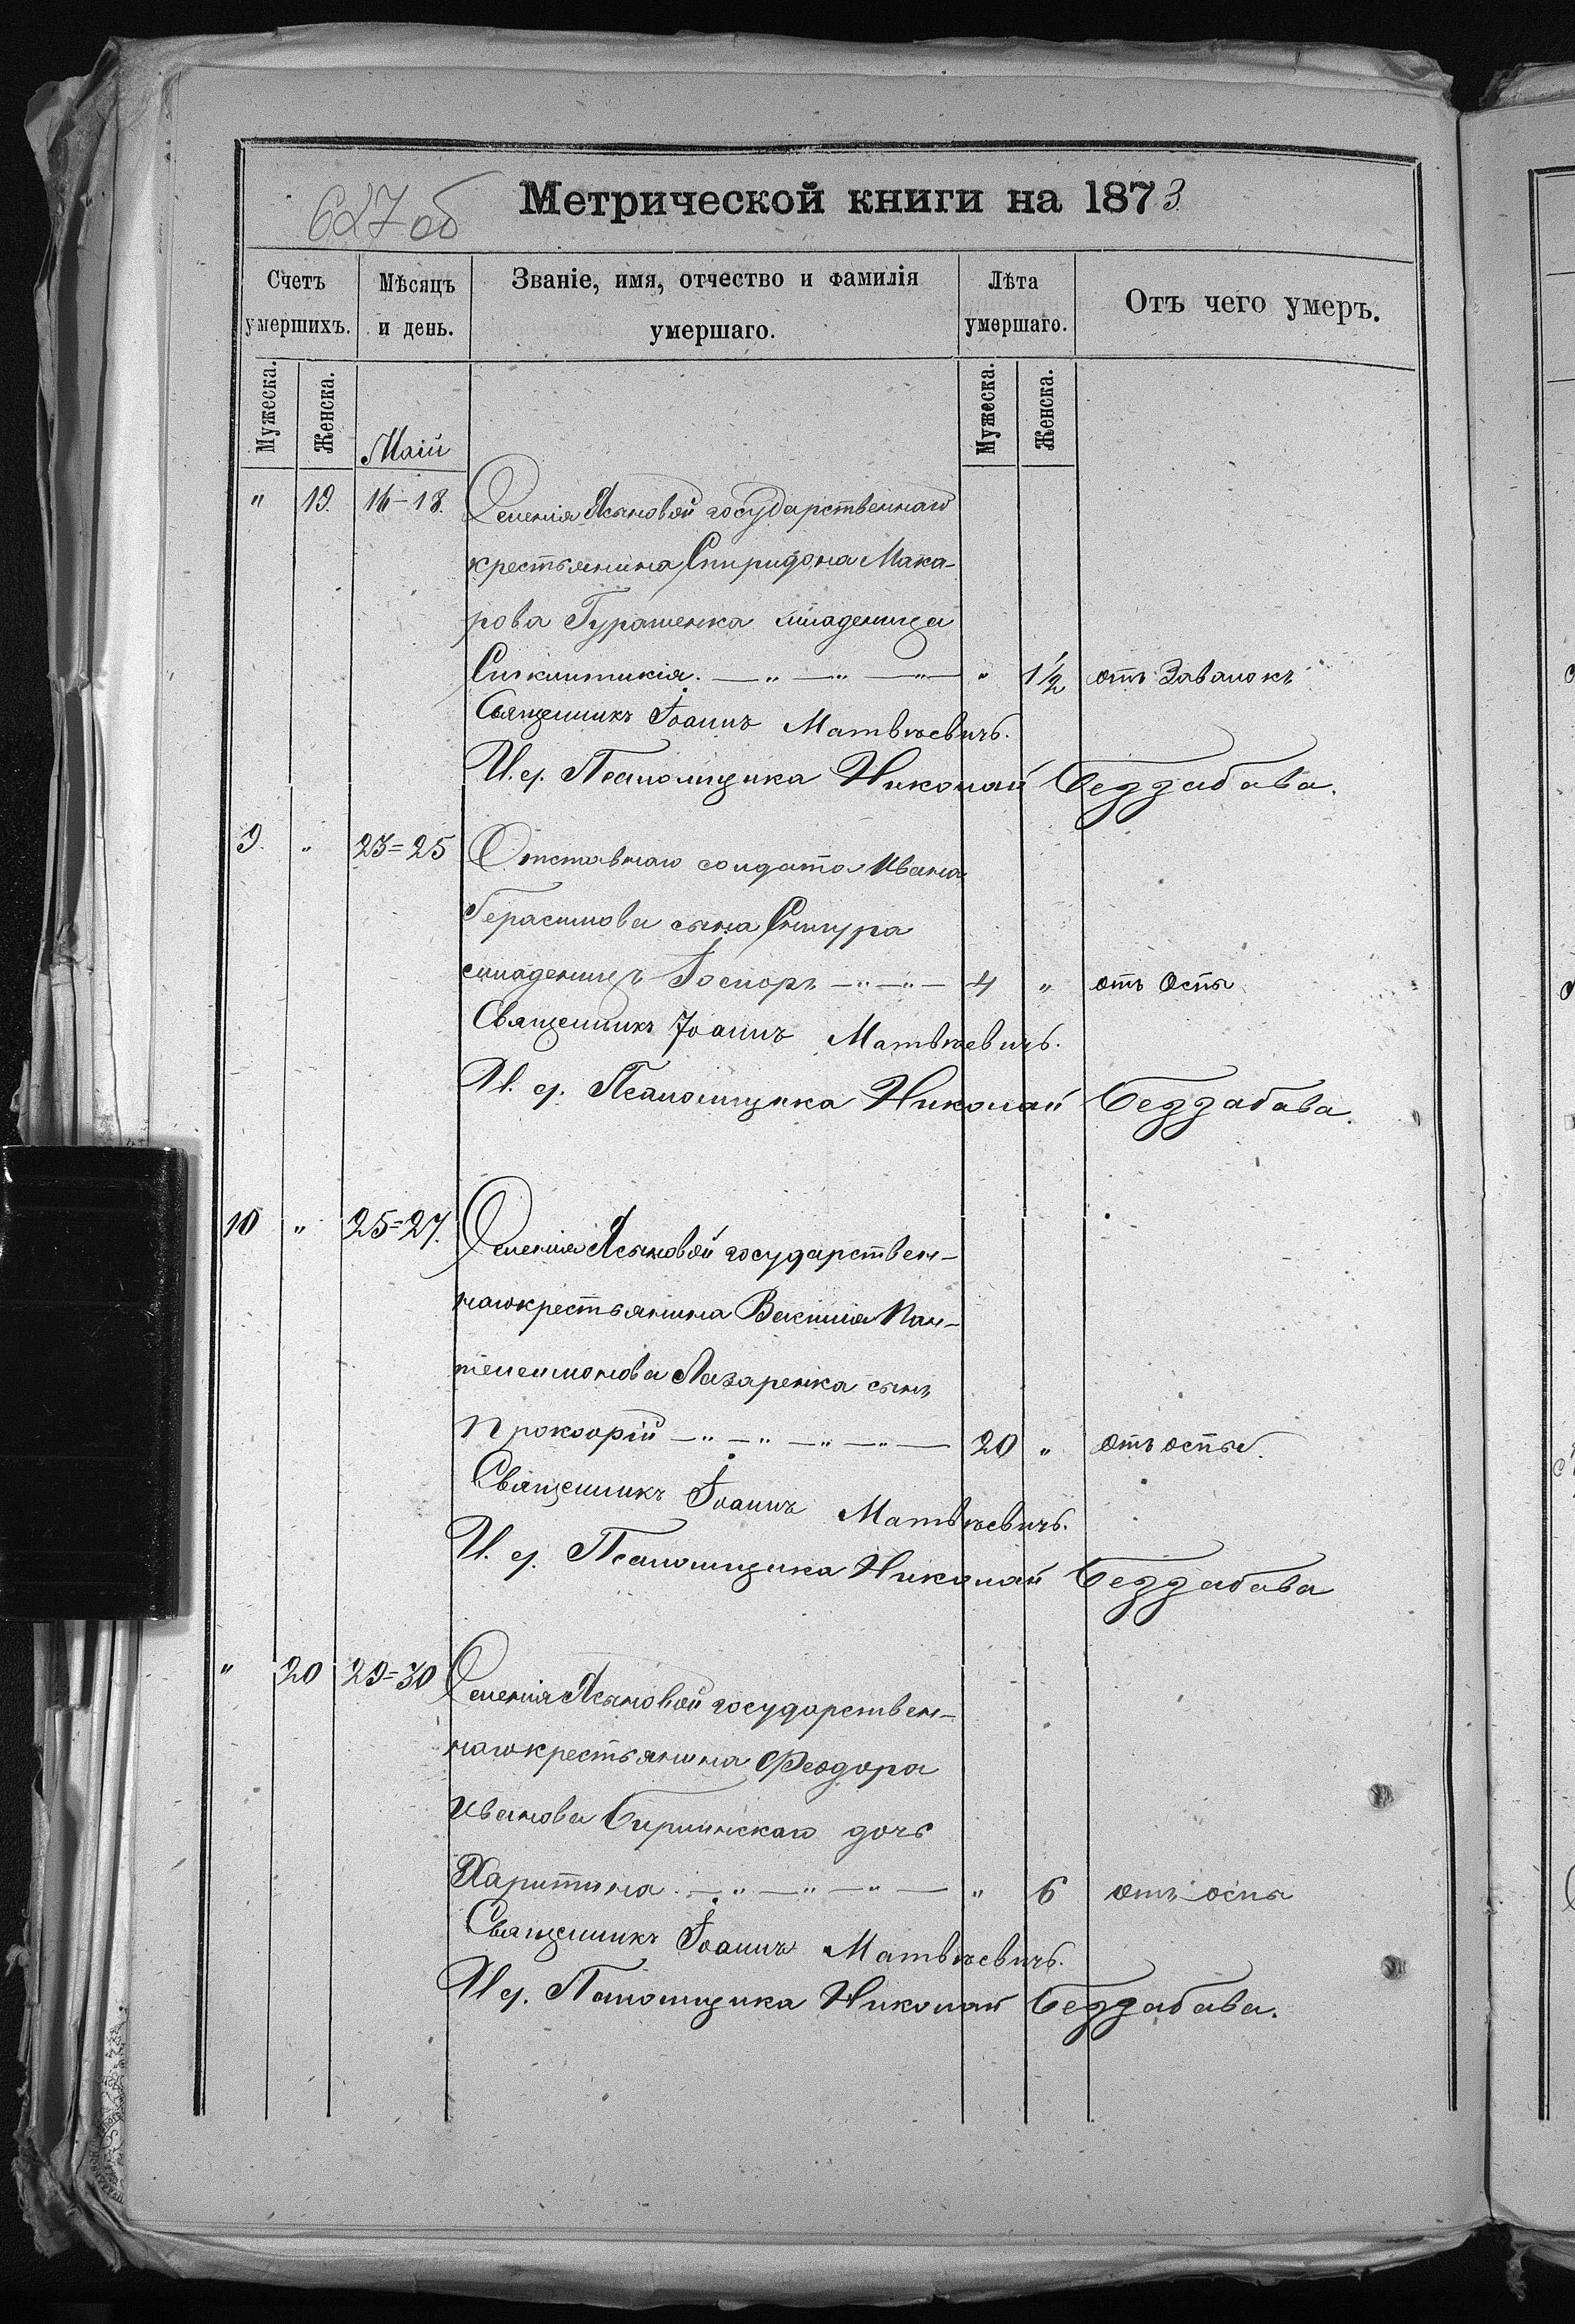 627 об
Метрической книги на 1873
Счетъ умершихъ.
Мѣсяцъ и день.
Званіе, имя, отчество и фамилія умершаго.
Лѣта умершаго.
Отъ чего умеръ.
Мужеска.
Женска.
Маій
Мужеска.
Женска.
" 19. 16-18. Селенія Ясыновой государственнаго
крестьянина Спиридона Мака-
рова Гурашенка младеница
" 1½ отъ Завалокъ
Священникъ Іоаннъ Матвѣевичъ.
И. д. Псаломщика Николай Беззабава.
9. " 23=25 Отставнаго солдата Ивана
Герасимова сына
младенецъ " 4 " отъ Оспы
Священникъ Іоаннъ Матвѣевичъ.
И. д. Псаломщика Николай Беззабава.
10 " 25=27. Селенія Ясыновой государствен-
наго крестьянина Василія Пан-
телеимонова Лазаренка сынъ
Прокофій 20 " отъ оспы.
Священникъ Іоаннъ Матвѣевичъ.
И. д. Псаломщика Николай Беззабава
" 20 29=30 Селенія Ясыновой государствен-
наго крестьянина Феодора
Иванова дочь
Харитина. " 6 отъ оспы
Священникъ Іоаннъ Матвѣевичъ.
И д. Псаломщика Николай Беззабава.